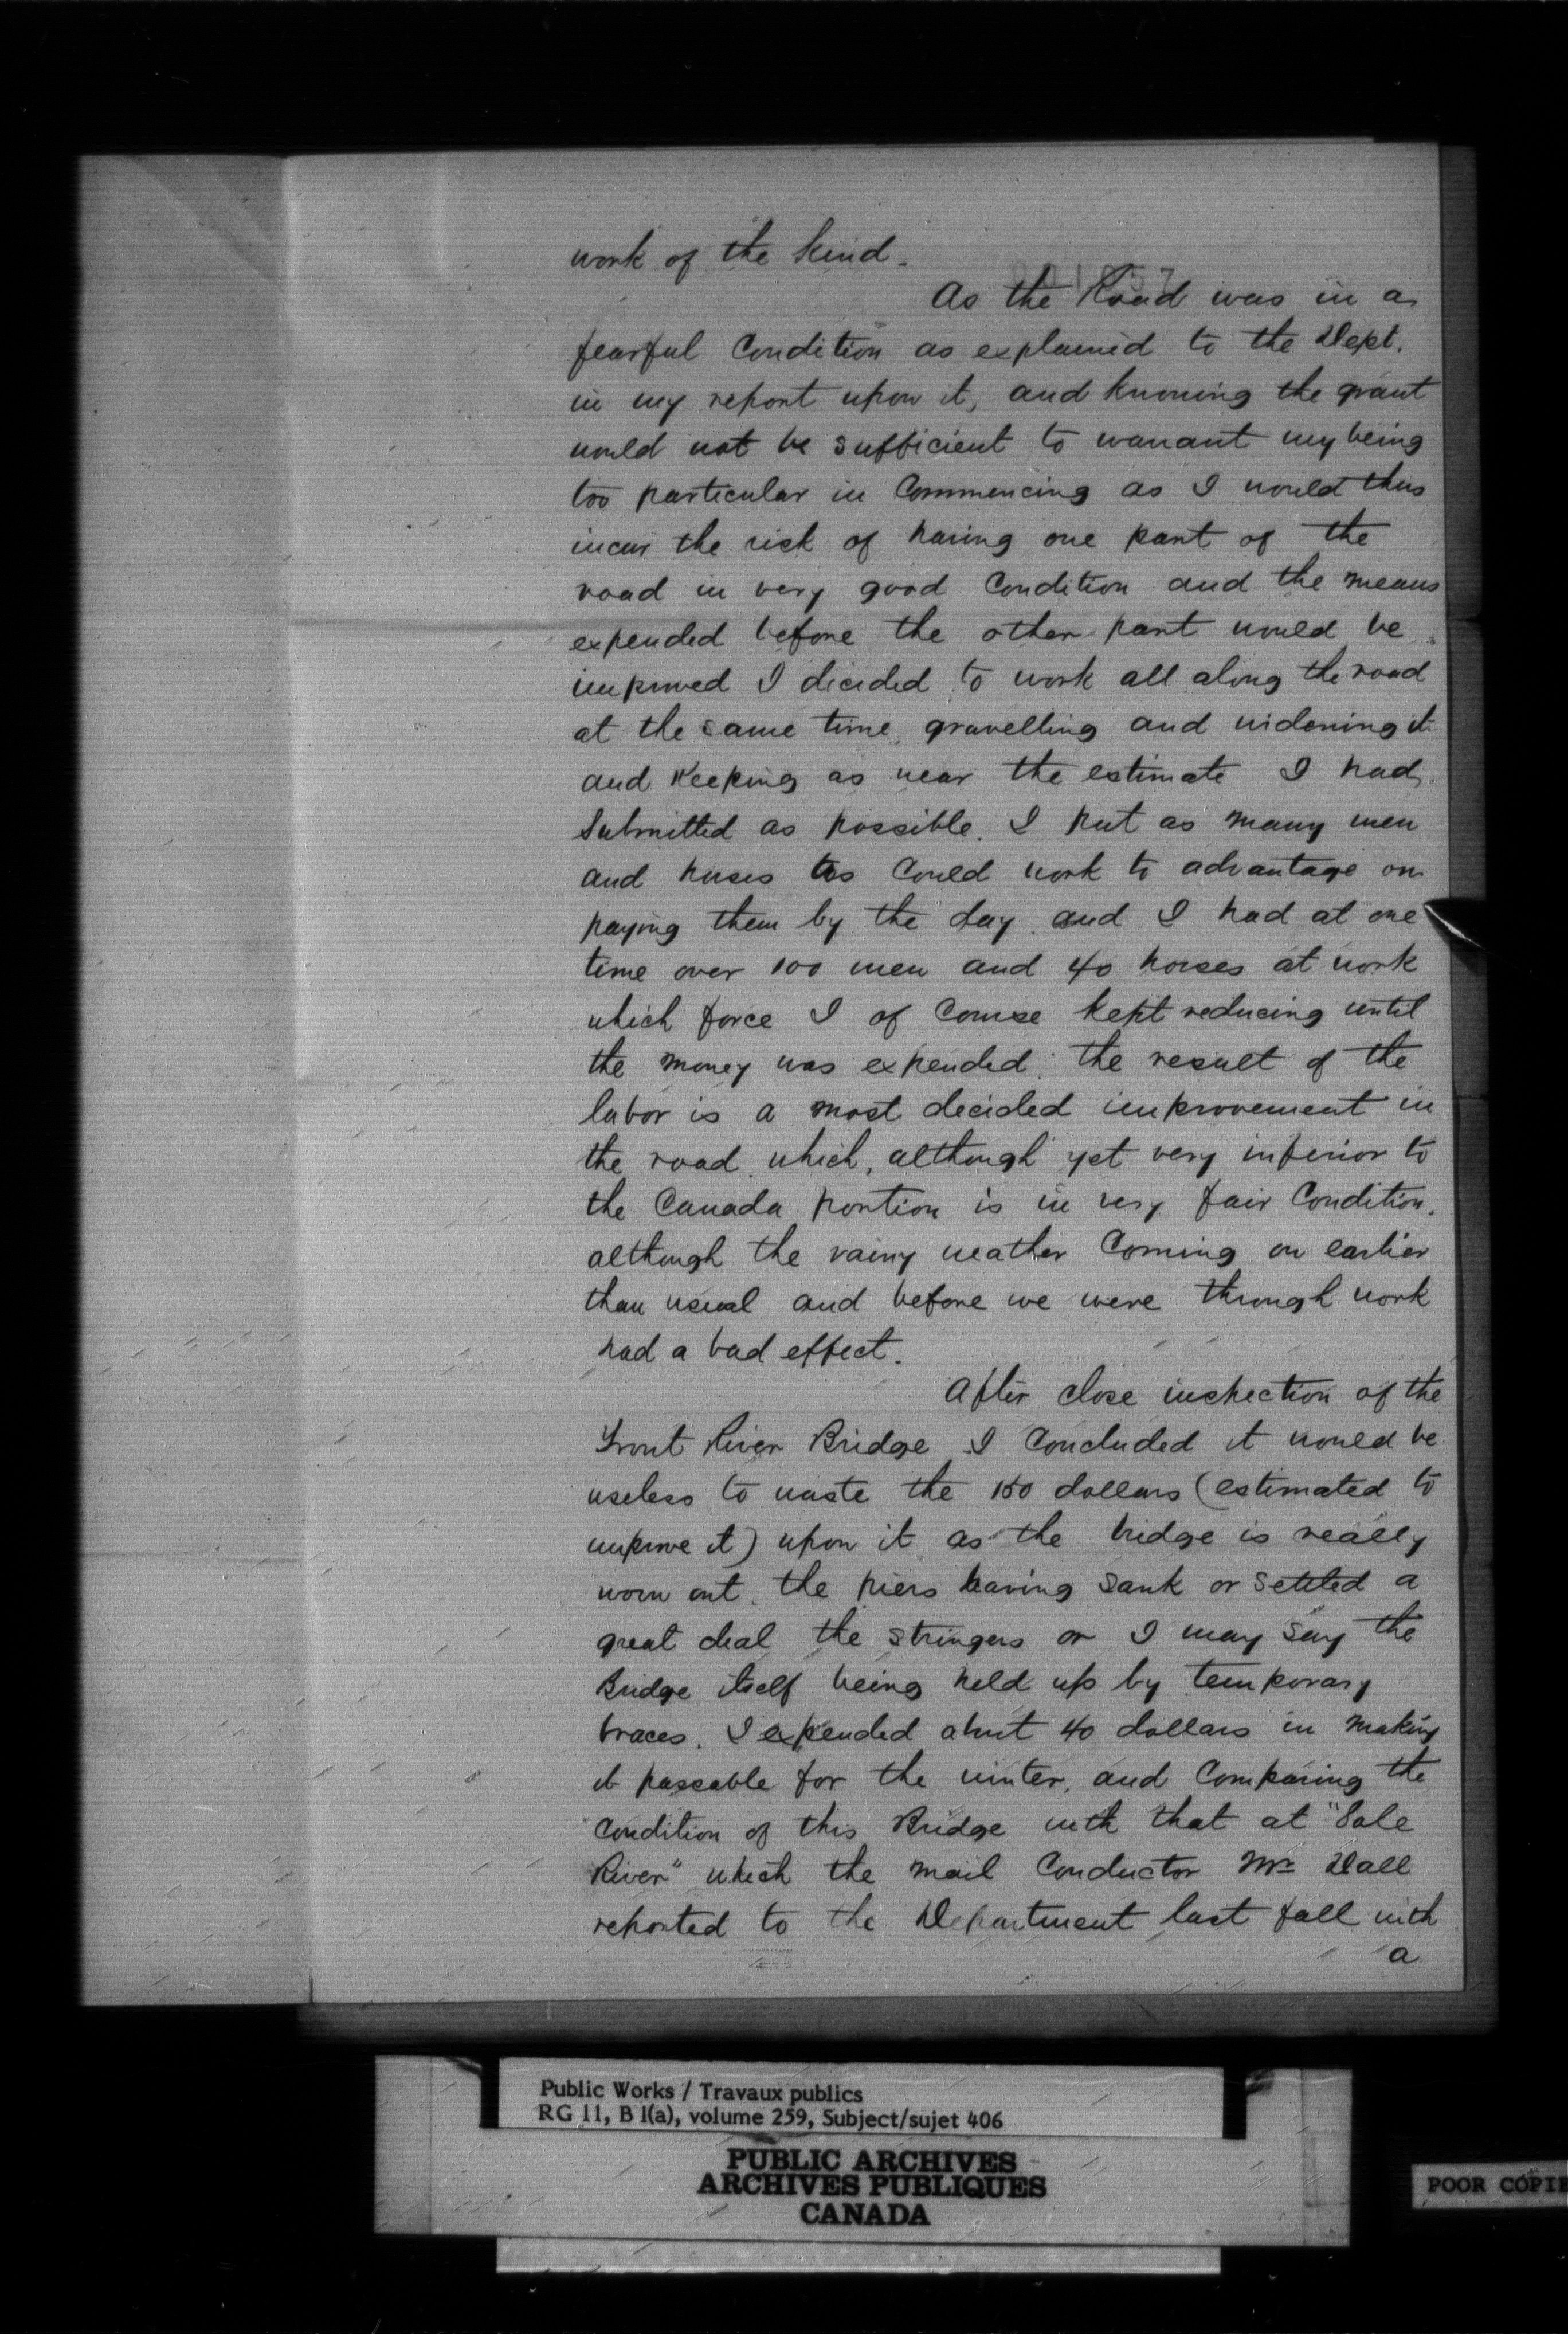 work of the kind.
As the Road was in a
fearful Condition as explained to the Dept.
in my report upon it, and knowing the grant
would not be sufficient to warrant my being
too particular in Commencing as I would thus
incur the risk of having one part of the
road in very good Condition and the means
expended before the other part would be
improved I decided to work all along the road
at the same time, gravelling and widening it
and Keeping as near the estimate I had
Submitted as possible. I put as many men
and horses as Could work to advantage on
paying them by the day and I had at one
time over 100 men and 40 horses at work
which force I of Course kept reducing until
the money was expended. the result of the
labor is a most decided improvement in
the road, which, although yet very inferior to
the Canada portion is in very fair Condition.
although the rainy weather Coming on earlier
than usual and before we were through work
had a bad effect.
After close inspection of the
Trout River Bridge I Concluded it would be
useless to waste the 150 dollars (estimated to
improve it) upon it as the bridge is really
worn out. the piers having sank or settled a
great deal the stringers or I may say the
Bridge itself being held up by temporary
braces. I expended about 40 dollars in making
it passable for the winter, and Comparing the
Condition of this Bridge with that at "Sale
River" which the mail Conductor Mr Dall
reported to the Department last fall with
a
Public Works / Travaux publics
RG 11, B 1(a), volume 259, Subject/sujet 406
PUBLIC ARCHIVES
ARCHIVES PUBLIQUES
CANADA
POOR COPIE